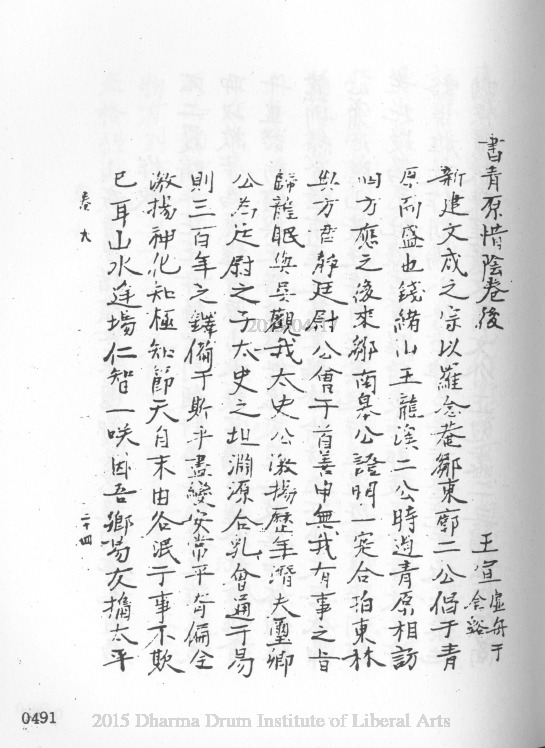 書青原惜陰卷後
王宣 虛舟于金谿
新建文成之宗以羅念菴鄒東廓二公倡于青
原而盛也錢緒山王龍溪二公時過青原相訪
四方應之後來鄒南臯公證明一宛合拍東林
與方君靜廷尉公會于首善申無我有事之旨
歸龍眠與吳觀我太史公激揚歷年潛夫璽卿
公為廷尉之子太史之坦淵源合乳會通于易
則三百年之鐸備于斯乎盡變安常平奇偏全
激揚神化知極知節天自末由各泯于事不欺
已耳山水逢場仁智一咲因吾鄉易友攜太平
卷九
二十四
0491
2015 Dharma Drum Institute of Liberal Arts